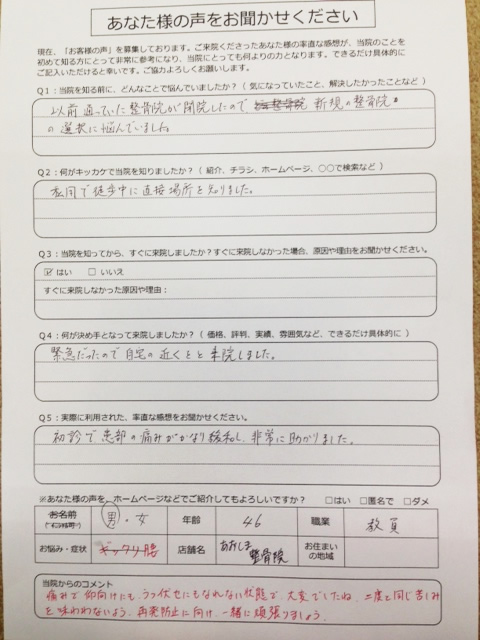 あなた様の声をお聞かせください
現在、「お客様の声」を募集しております。ご来院くださったあなた様の率直な感想が、当院のことを
初めて知る方にとって非常に参考になり、当院にとっても何よりの力となります。できるだけ具体的に
ご記入いただけると幸いです。ご協力よろしくお願いします。
Q1：当院を知る前に、どんなことで悩んでいましたか？（ 気になっていたこと、解決したかったことなど ）
以前通っていた整骨院が閉院したので 新規の整骨院
の選択に悩んでいました。
Q2：何がキッカケで当院を知りましたか？（ 紹介、チラシ、ホームページ、○○で検索など ）
私用で徒歩中に直接場所を知りました。
Q3：当院を知ってから、すぐに来院しましたか？すぐに来院しなかった場合、原因や理由をお聞かせください。
☑ はい □ いいえ
すぐに来院しなかった原因や理由：
Q4：何が決め手となって来院しましたか？（ 価格、評判、実績、雰囲気など、できるだけ具体的に ）
緊急だったので自宅の近くと 来院しました。
Q5：実際に利用された、率直な感想をお聞かせください。
初診で患部の痛みがかなり緩和し、非常に助かりました。
※あなた様の声を、ホームページなどでご紹介してもよろしいですか？ □はい □匿名で □ダメ
お名前 男・女 年齢 46 職業 教員
お悩み・症状 ギックリ腰 店舗名 あおしま整骨院 お住まいの地域
当院からのコメント
痛みで仰向けにも、うつ伏せにもなれない状態で、大変でしたね。二度と同じ苦しみ
を味わわないよう、再発防止に向け、一緒に頑張りましょう。